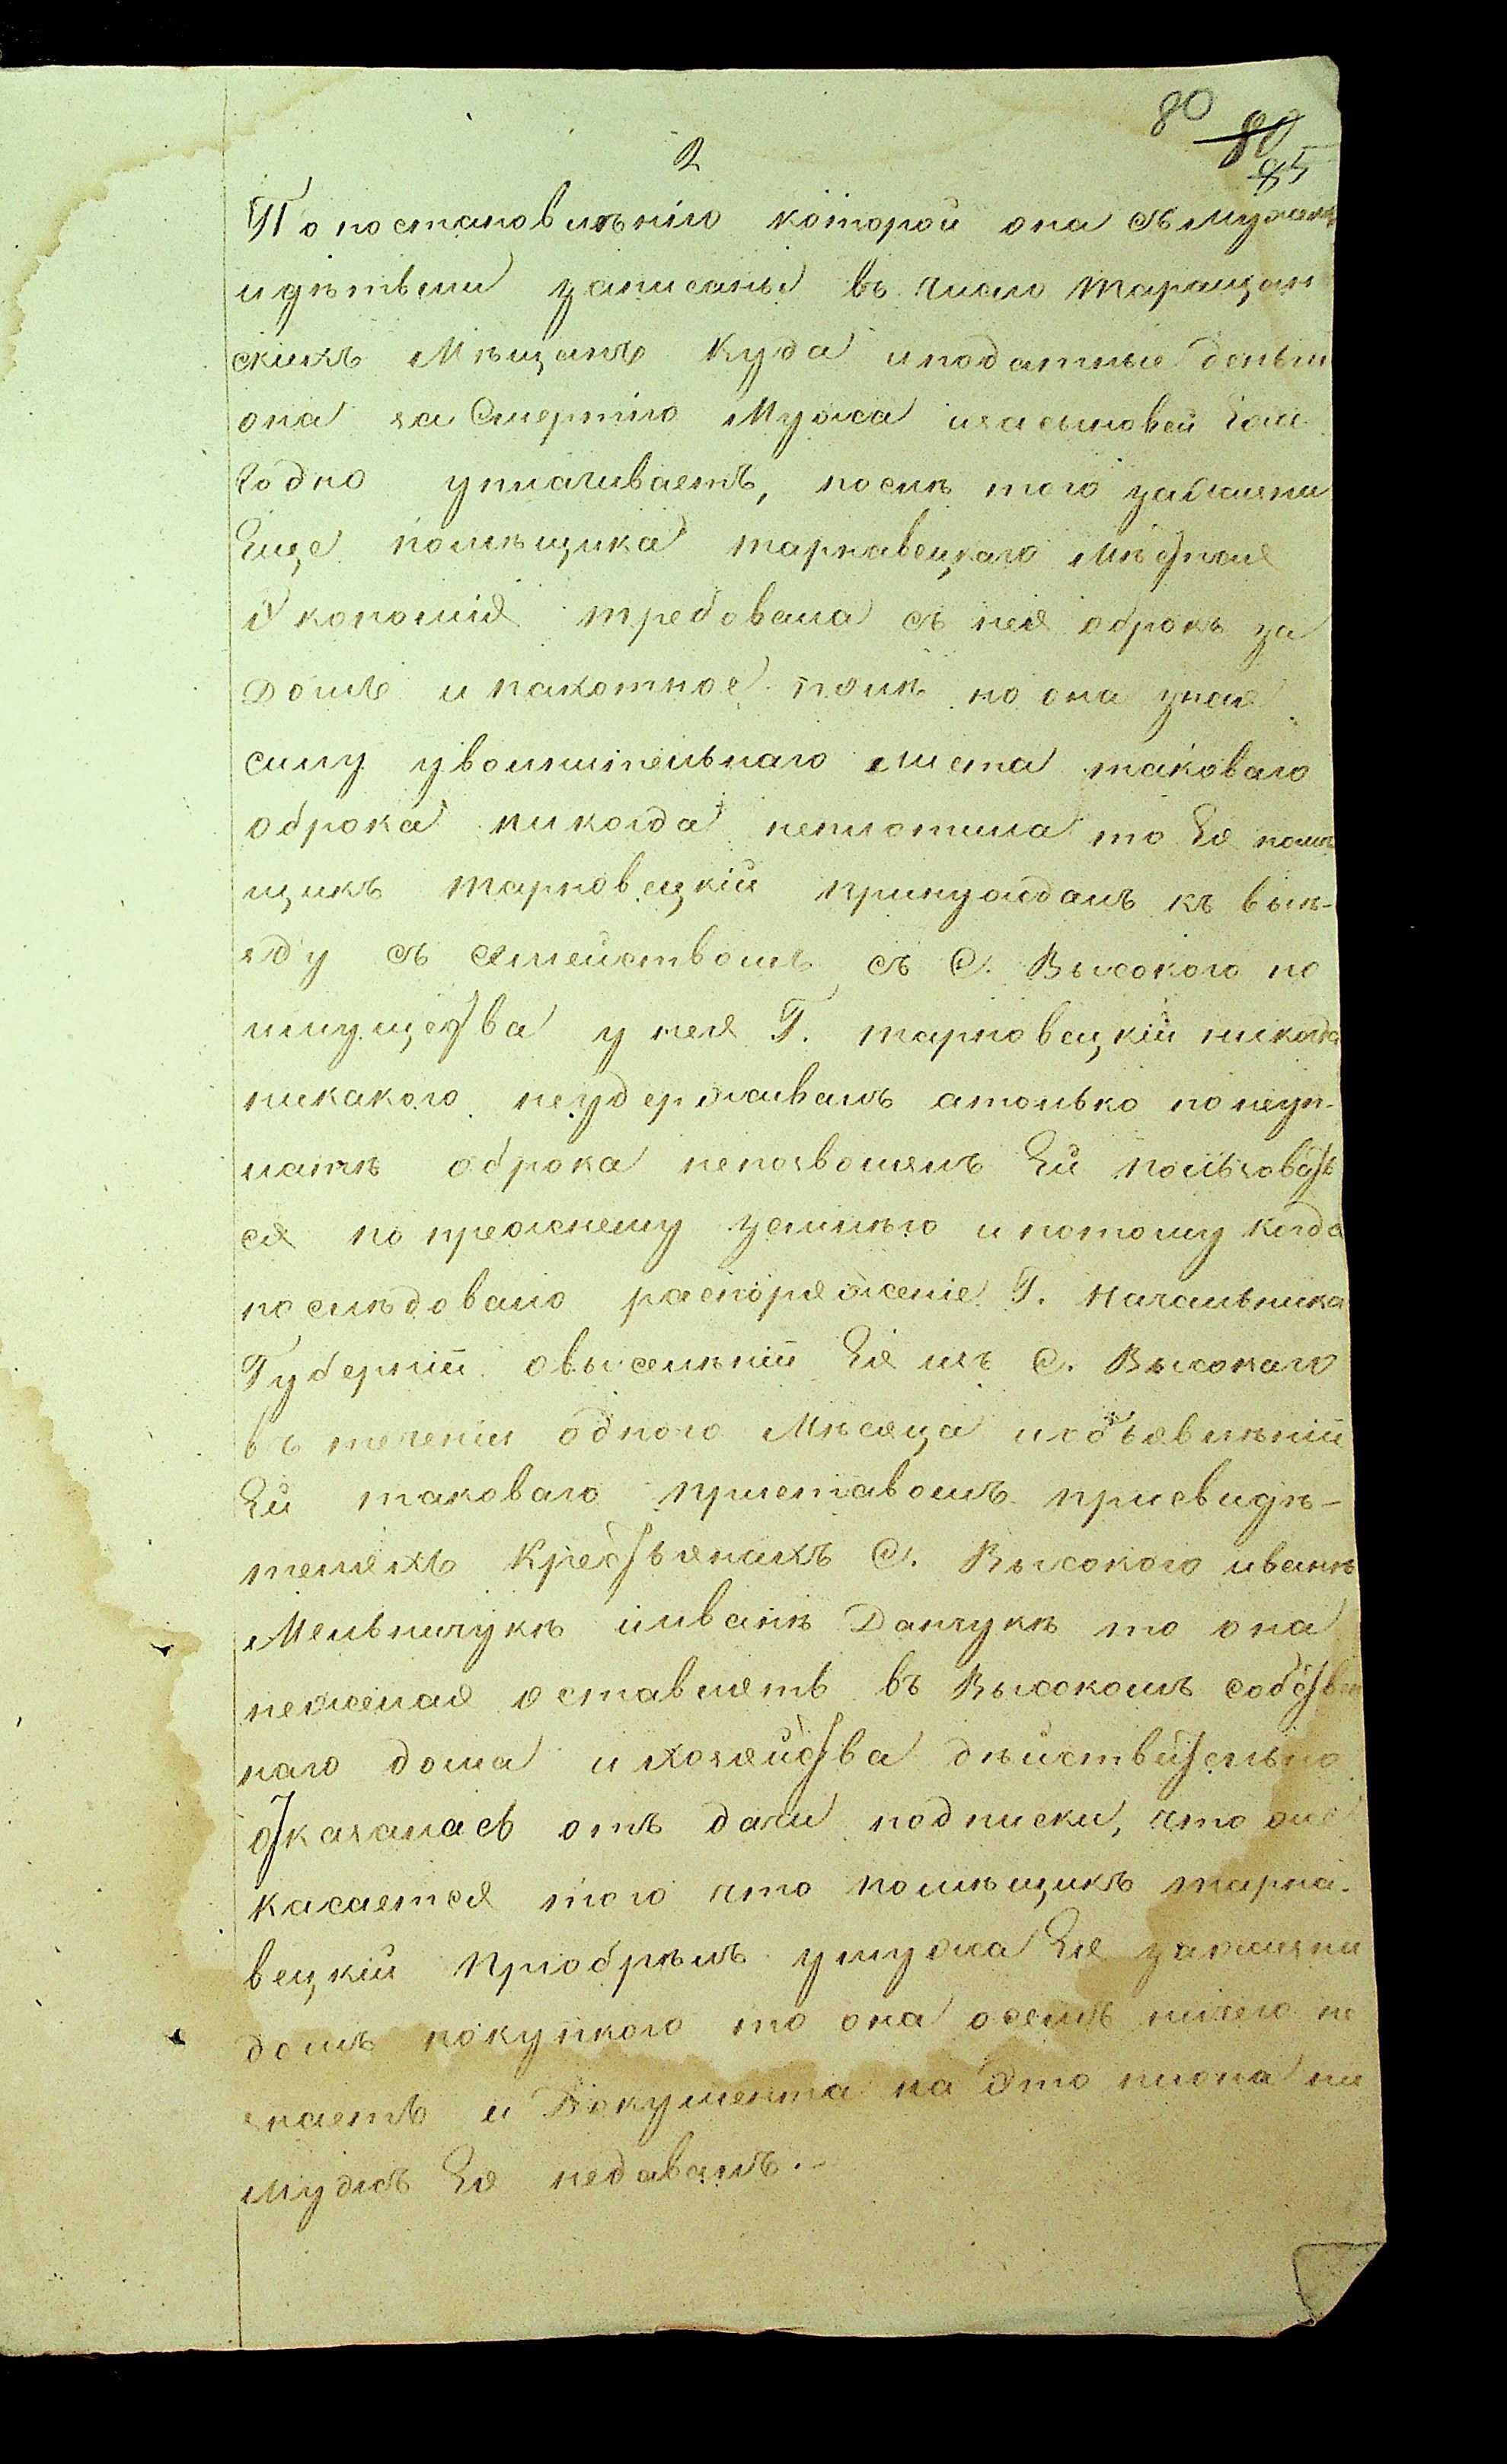 80
80
85
2
По постановлѣнію которой она съ мужемъ
и дѣтьми записаны въ число таращан
скихъ мѣщанъ куда и податные деньги
она за смертію мужа и за сыновей еже
годно уплачиваетъ, послѣ того за жизни
еще помѣщика тарнавецкаго мѣстная
экономія требовала съ нея оброкъ за
домъ и пахотное поле но она зная
силу увольнительнаго листа таковаго
оброка никогда неплотила то ея помѣ
щикъ тарновецкій принуждалъ къ выѣ-
зду съ семействомъ съ с. Высокого но
имущества у нея Г. тарновецкій никогда
никакого неудерживалъ атолько понеуп-
латѣ оброка непозволялъ ей пользоватъ
ся попрежнему землѣю и потому когда
послѣдовало распоряженіе Г. Начальника
Губерніи овыселѣніи ея изъ с. Высокаго
въ теченіи одного мѣсяца и объявлѣніи
ей таковаго приставомъ присвидѣ-
теляхъ крестьянахъ с. Высокого иванѣ
Мельничукѣ и иванѣ Данчукѣ то она
нежелая оставлять въ Высокомъ собствен
наго дома и хозяйства дѣйствительно
отказалась отъ дачи подписки, что же
касается того что помѣщикъ тарна-
вецкій приобрѣлъ у мужа ея за жизни
домъ покупкою то она осемъ ничего не
знаетъ и документа на это ниона ни
мужъ ея недавалъ.-